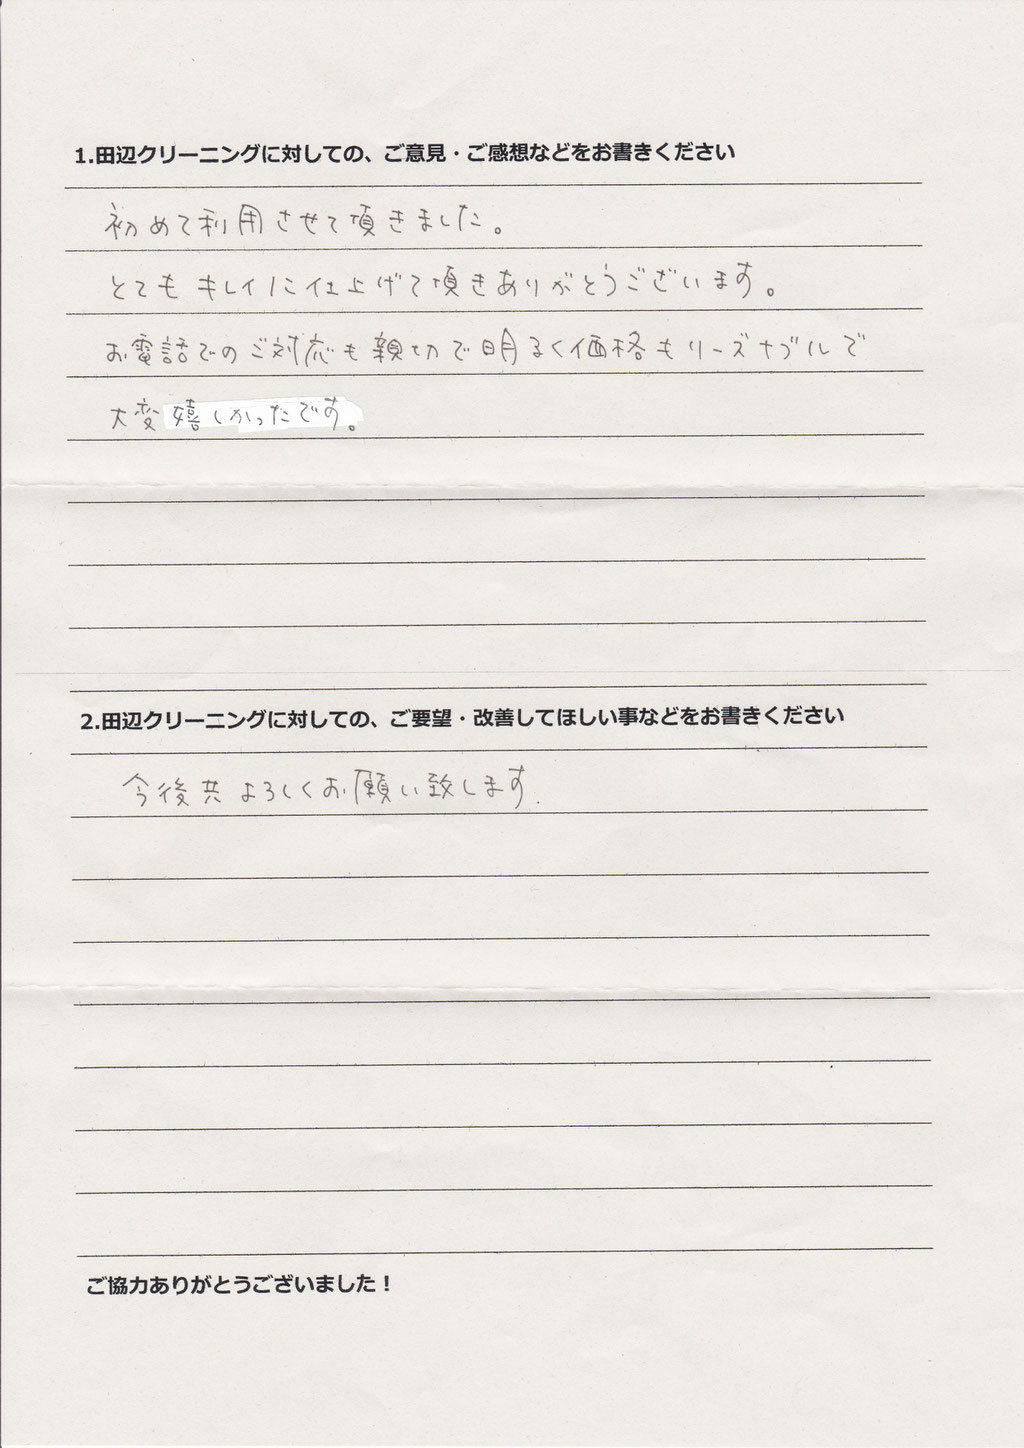 1.田辺クリーニングに対しての、ご意見・ご感想などをお書きください
初めて利用させて頂きました。
とてもキレイに仕上げて頂きありがとうございます。
お電話でのご対応も親切で明るく価格もリーズナブルで
大変嬉しかったです。
2.田辺クリーニングに対しての、ご要望・改善してほしい事などをお書きください
今後共よろしくお願い致します.
ご協力ありがとうございました！